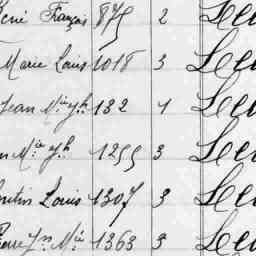 René François 875 2 Le
Marie Louis 1018 3 Le
Jean Mie Jh 132 1 Le
n Mie Jh 1255 3 Le
entin Louis 1307 3 Le
Pierre Jn Mie 1363 3 Le